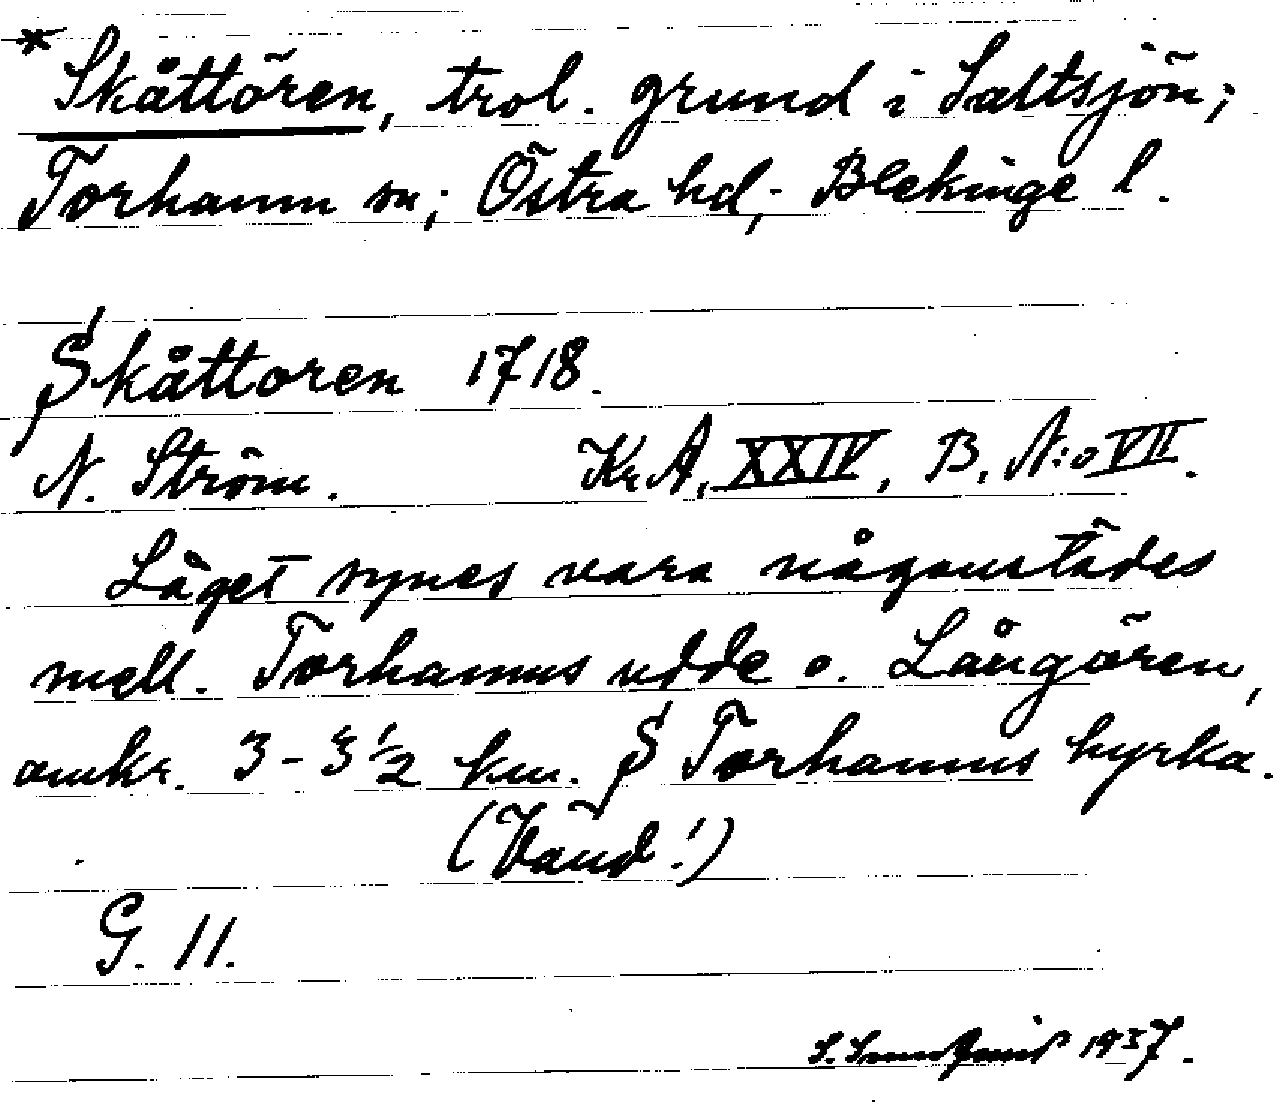 * Skåttören, trol. grund i Saltsjön;
Torhamn sn; Östra hd; Blekinge l.
Skåttoren 1718.
N. Ström. Kr. A, XXIV, B, N:o VII.
Läget synes vara någonstädes
mell. Torhamns udde o. Långören,
omkr. 3-3½ km. S Torhamns kyrka.
(Vänd!)
G. 11.
S. 1937.